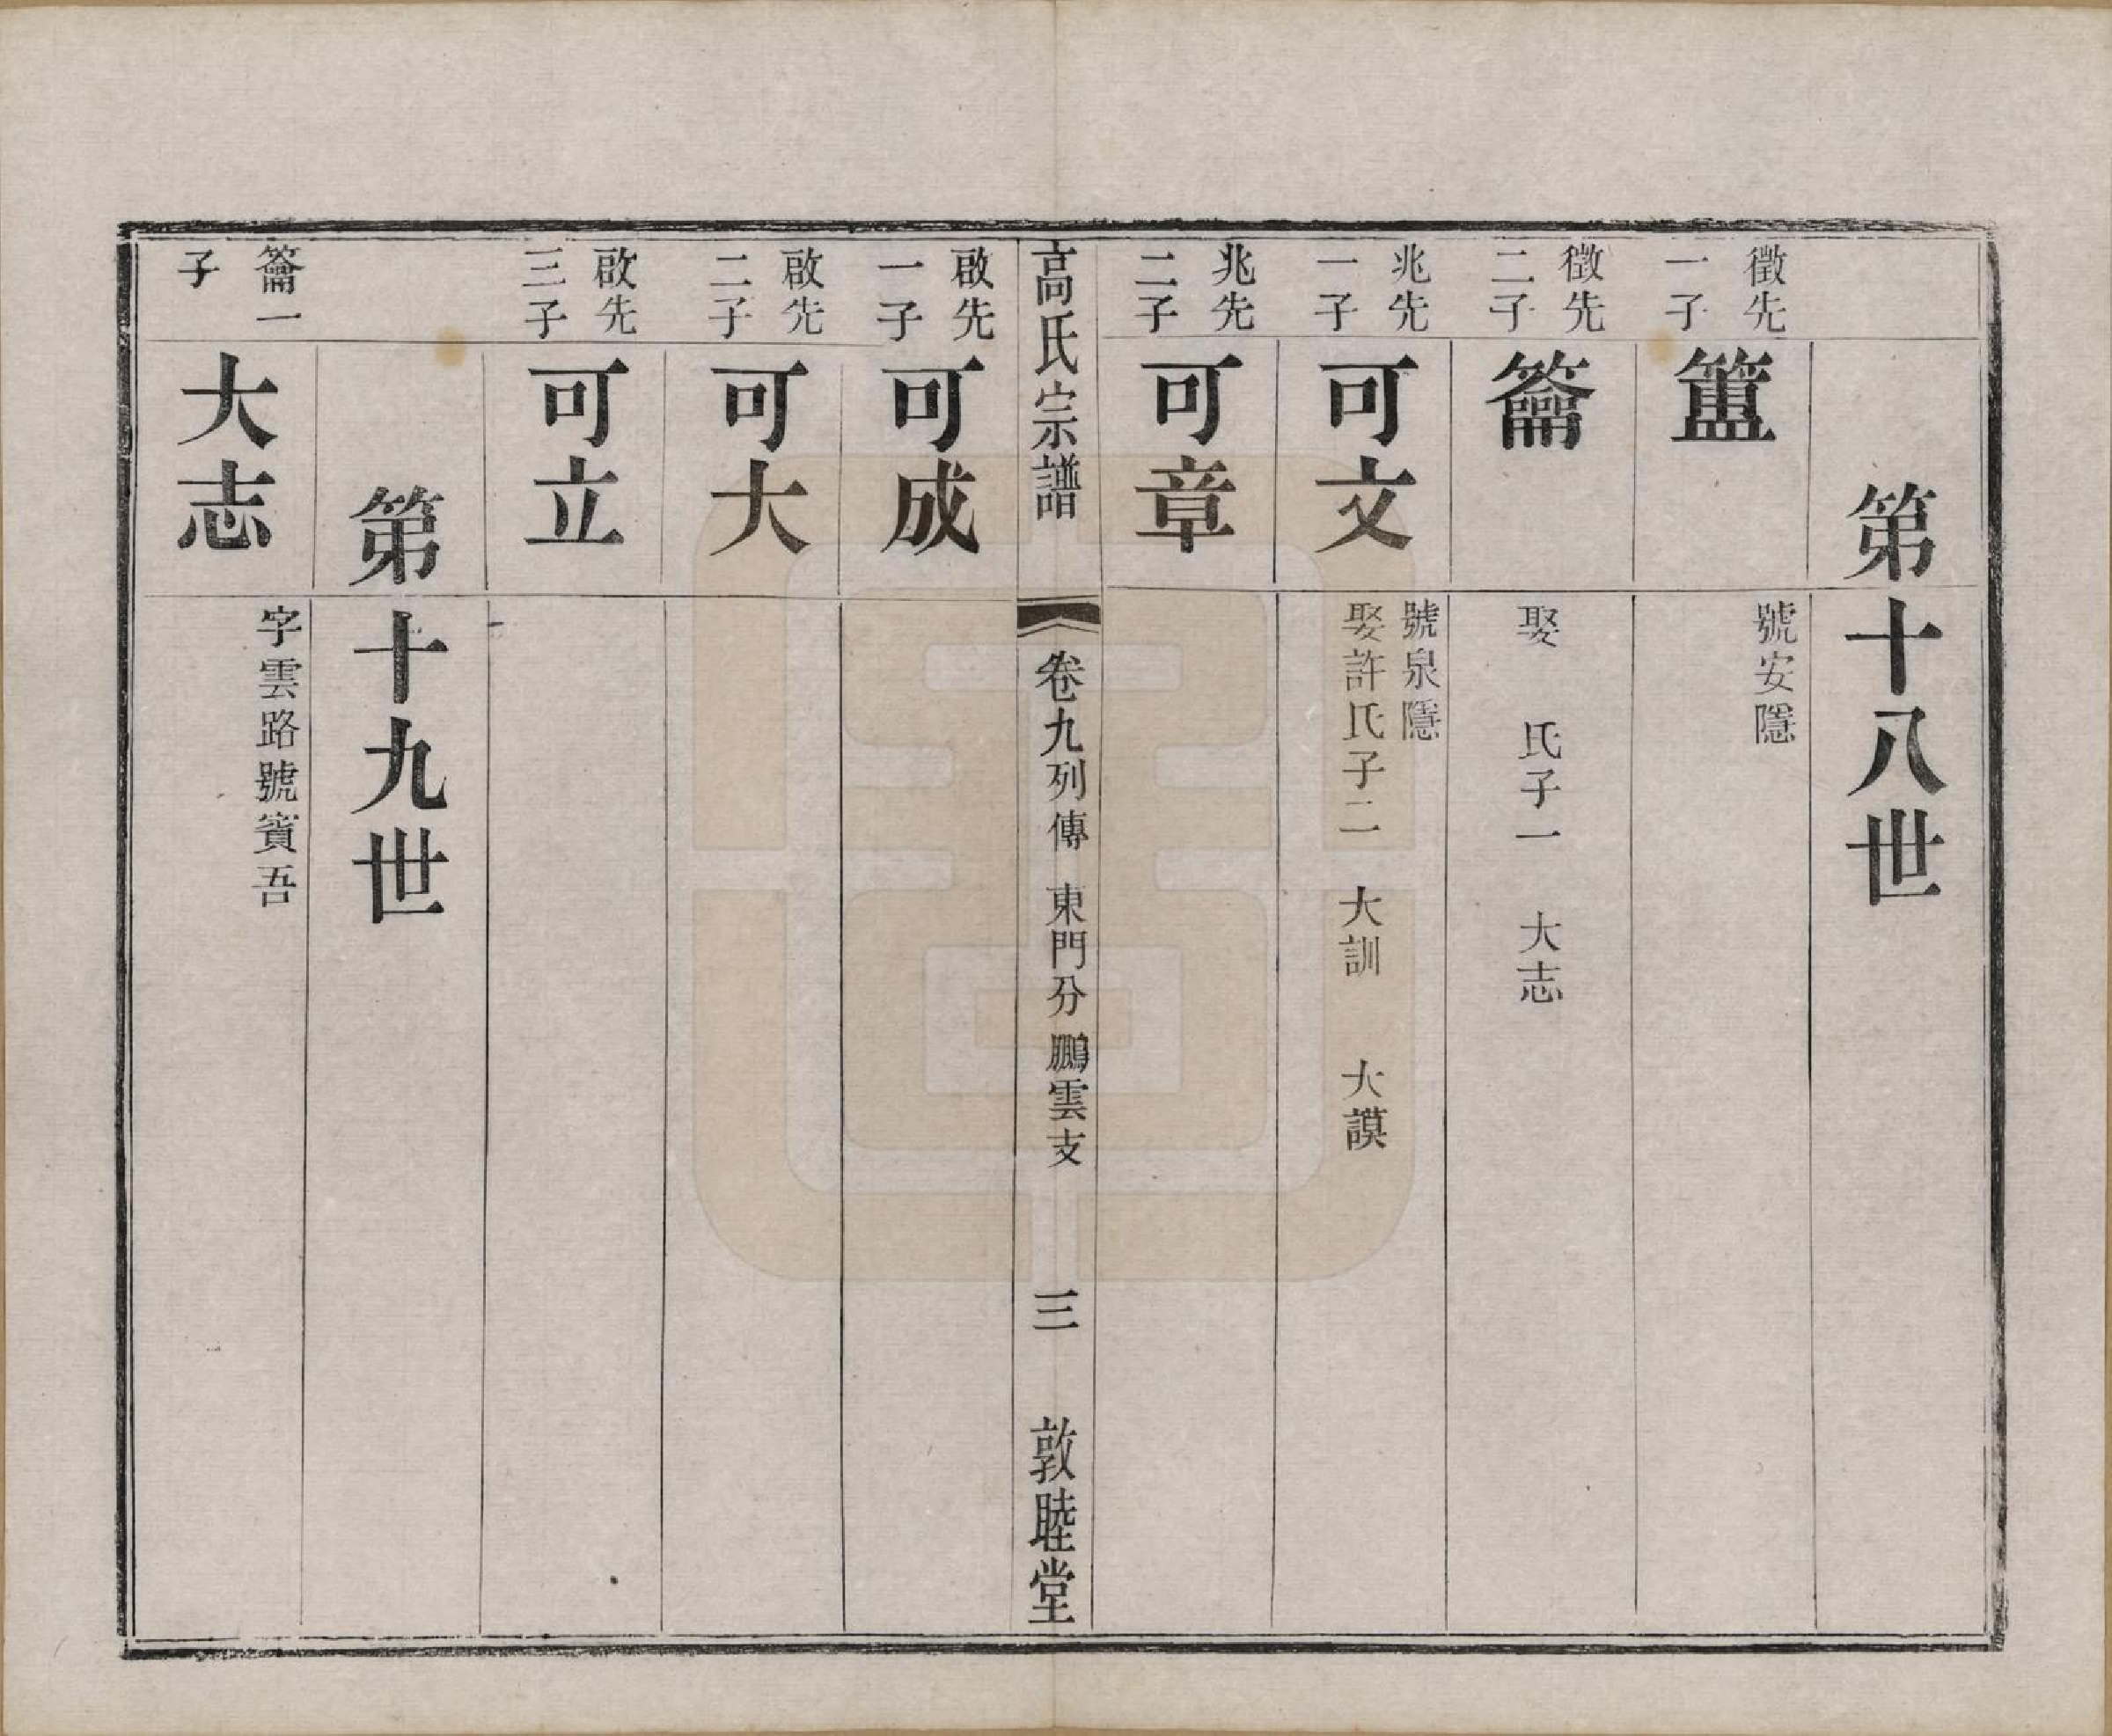 第十八世
徵先
一子
簠
號安隱
徵先
二子
籥
娶　氏子一　大志
兆先
一子
可文
號泉隱
娶許氏子二　大訓　大謨
兆先
二子
可章
高氏宗譜　卷九列傳　東門分　鵬雲支　三　敦睦堂
啟先
一子
可成
啟先
二子
可大
啟先
三子
可立
第十九世
籥一
子
大志
字雲路號賓吾